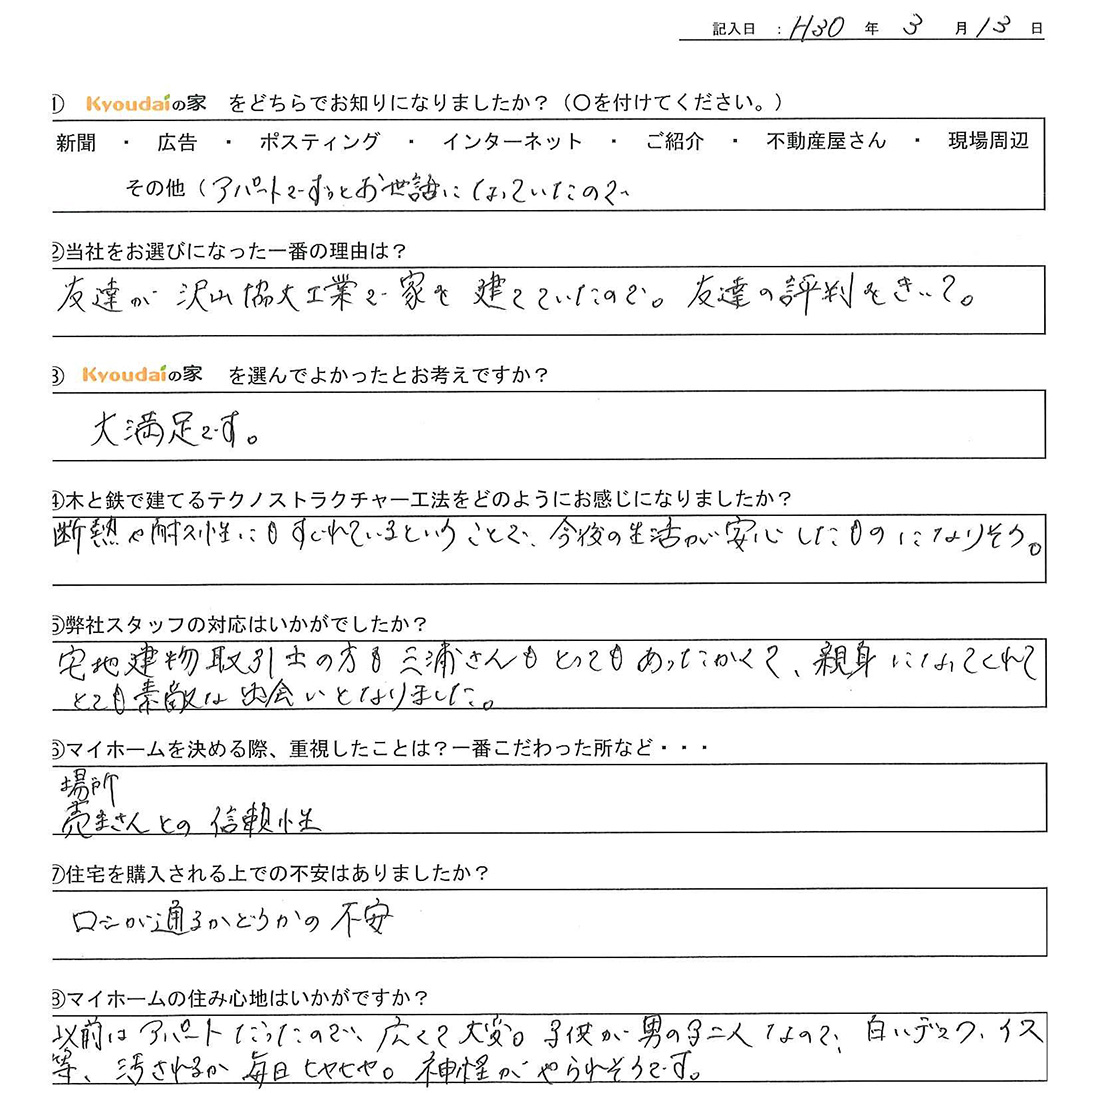 記入日 : H30 年 3 月 13 日
① Kyoudaiの家 をどちらでお知りになりましたか？（〇を付けてください。）
新聞 ・ 広告 ・ ポスティング ・ インターネット ・ ご紹介 ・ 不動産屋さん ・ 現場周辺
その他（アパートでずっとお世話になっていたので
②当社をお選びになった一番の理由は？
友達が沢山協大工業で家を建てていたので。友達の評判をきいて。
③ Kyoudaiの家 を選んでよかったとお考えですか？
大満足です。
④木と鉄で建てるテクノストラクチャー工法をどのようにお感じになりましたか？
断熱や耐久性にもすぐれているということで、今後の生活が安心したものになりそう。
⑤弊社スタッフの対応はいかがでしたか？
宅地建物取引士の方も三浦さんもとってもあったかくて、親身になってくれて
とても素敵な出会いとなりました。
⑥マイホームを決める際、重視したことは？一番こだわった所など・・・
場所
売主さんとの信頼性
⑦住宅を購入される上での不安はありましたか？
ローンが通るかどうかの不安
⑧マイホームの住み心地はいかがですか？
以前はアパートだったので、広くて大変。子供が男の子二人なので、白いデスク、イス
等、汚されるか毎日ヒヤヒヤ。神経がやられそうです。